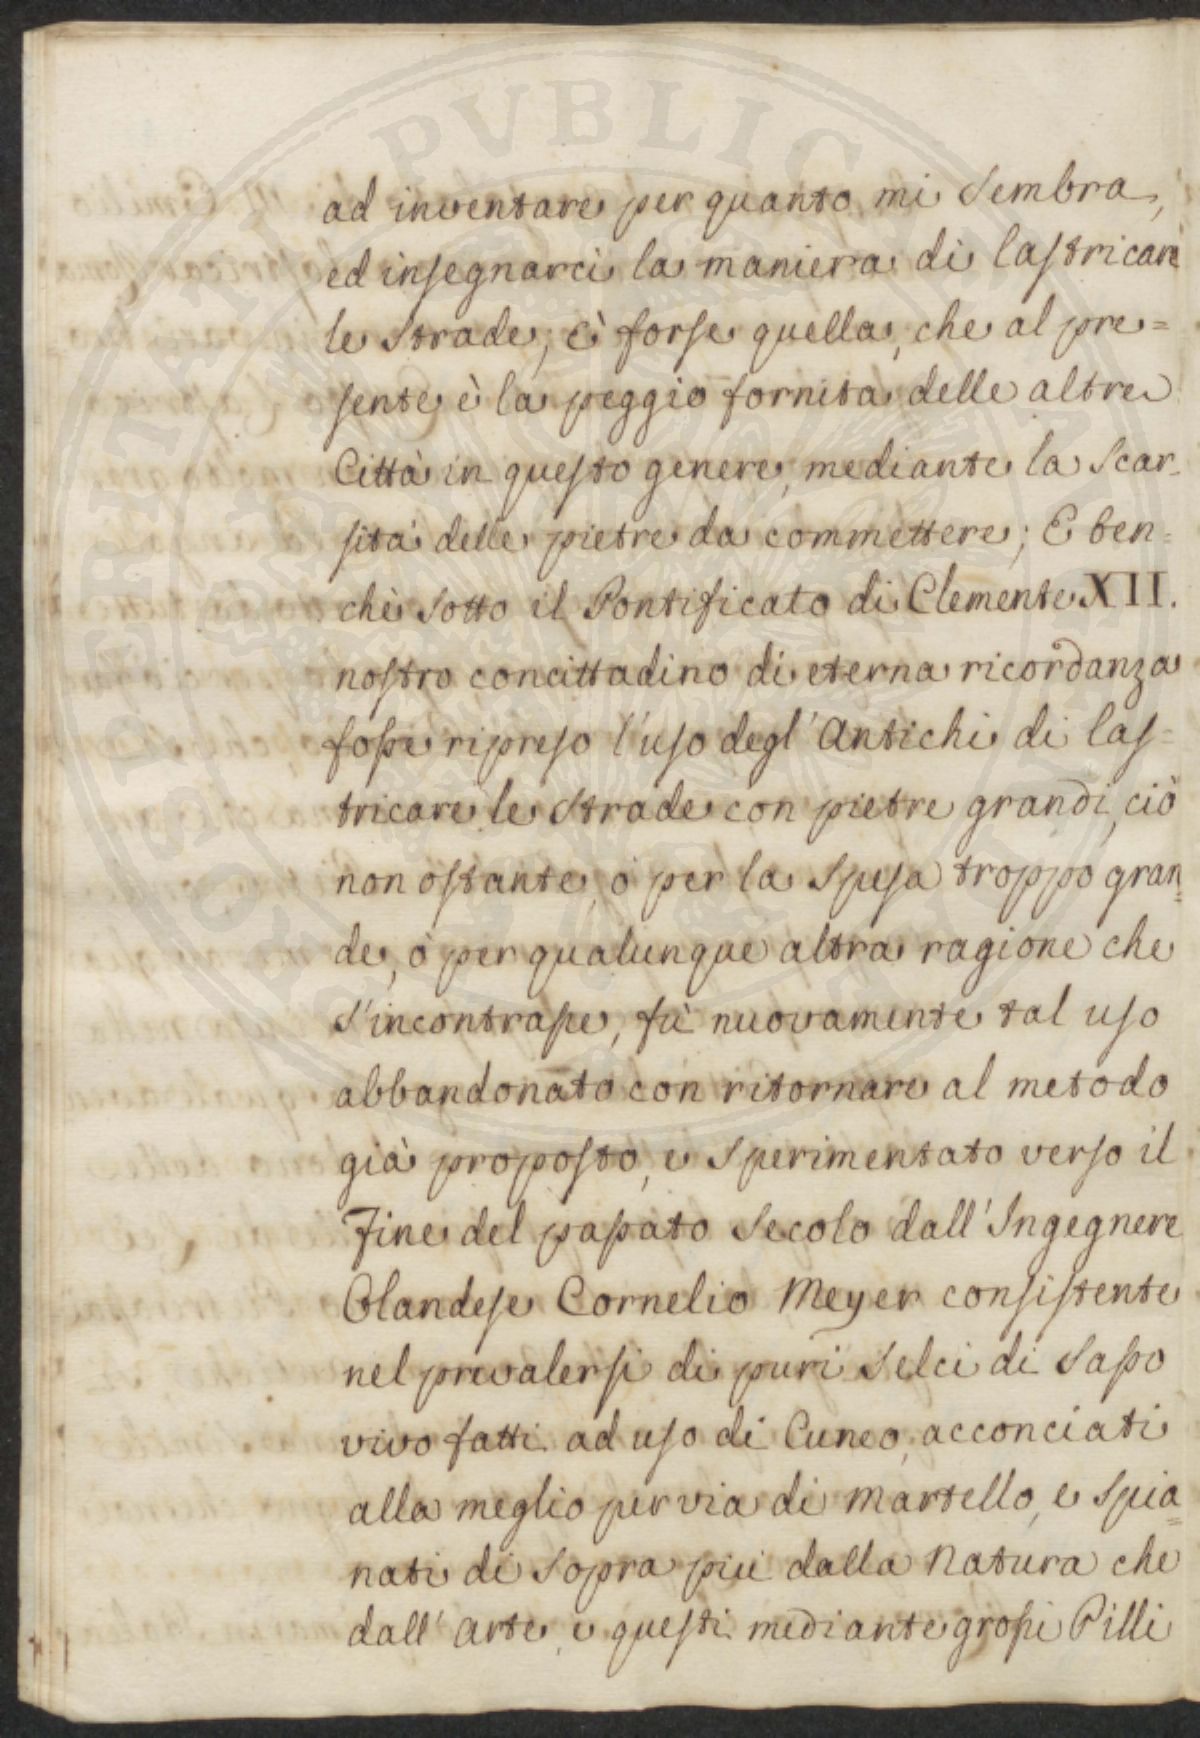 ad inventare per quanto mi sembra,
ed insegnarci la maniera di lastricare
le strade, è forse quella, che al pre=
sente è la peggio fornita delle altre
Città in questo genere, mediante la scar-
sità delle pietre da commettere; E ben=
chè sotto il Pontificato di Clemente XII.
nostro concittadino di eterna ricordanza
fosse ripreso l'uso degl'Antichi di las=
tricare le strade con pietre grandi, ciò
non ostante, ò per la spesa troppo gran=
de, ò per qualunque altra ragione che
s'incontrasse, fù nuovamente tal uso
abbandonato con ritornare al metodo
già proposto, e sperimentato verso il
Fine del passato secolo dall'Ingegnere
Olandese Cornelio Meyer consistente
nel prevalersi di puri selci di sasso
vivo fatti ad uso di Cuneo, acconciati
alla meglio per via di martello, e spia=
nati di sopra più dalla natura che
dall'arte, e questi mediante grossi Pilli